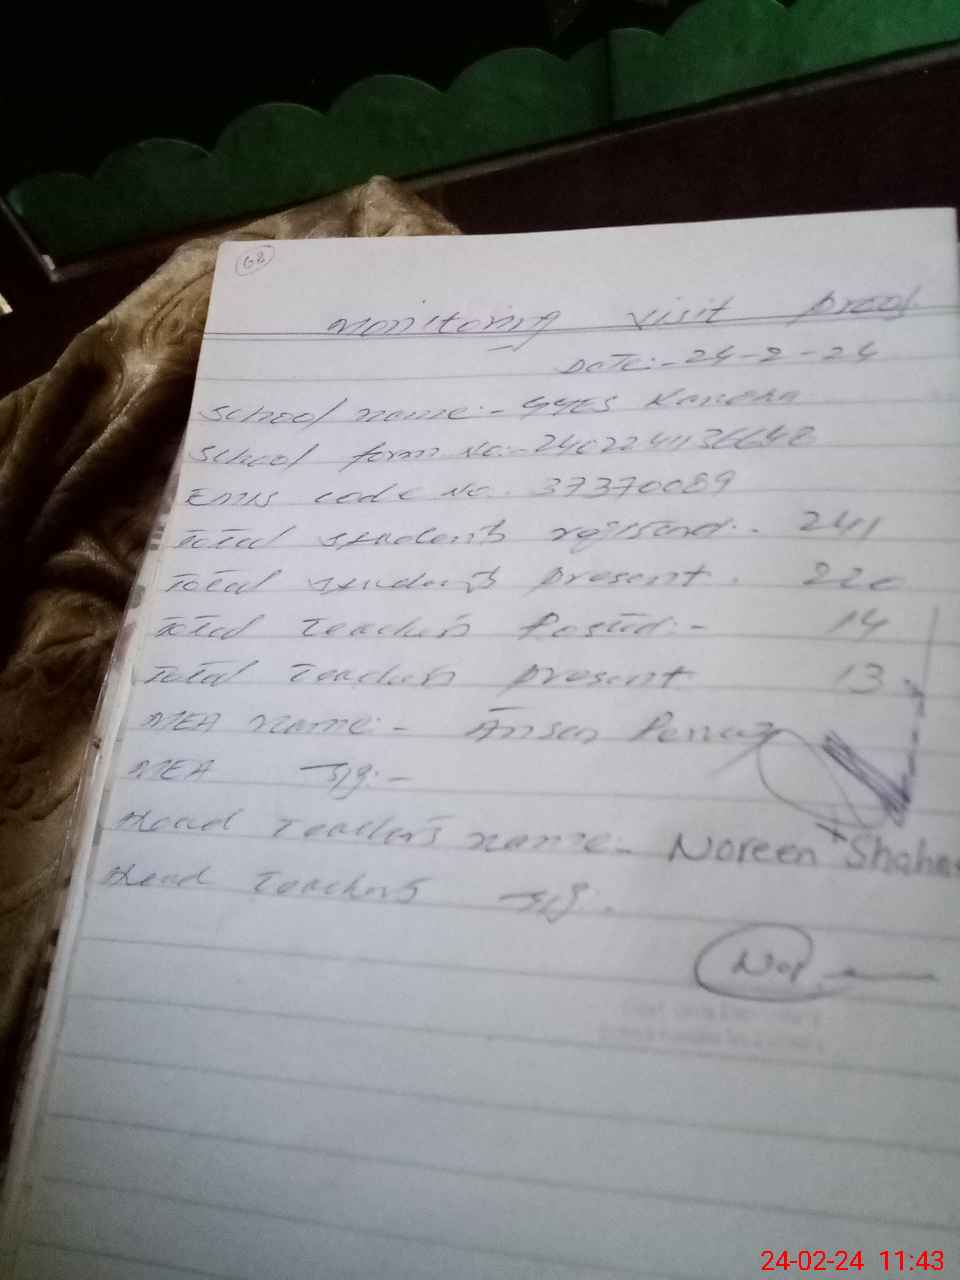 68
Monitoring visit proof
Date:- 24-2-24
School name:- GGES
School form No:-
EMIS code No. 37370089
Total students registerd:- 241
Total students present. 220
Total Teachers Posted:- 14
Total Teachers present 13
MEA name:- Ansar
MEA sig:-
Head Teacher's name:- Noreen
Head Teacher's sig:.
24-02-24 11:43